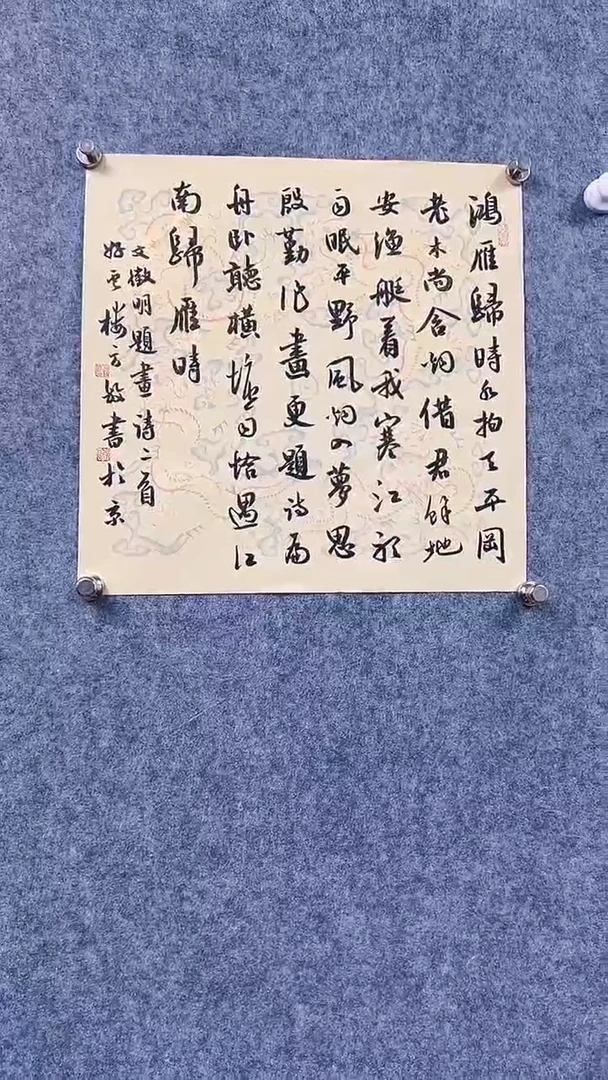 鴻雁歸時水拍天平岡
老木尚含烟借君餘地
安漁艇着我寒江聽
雨眠平野風烟入夢思
殷勤作畫更題詩扁
舟卧聽橫塘雨恰遇江
南歸雁時
文徵明題畫詩二首
樓書於京